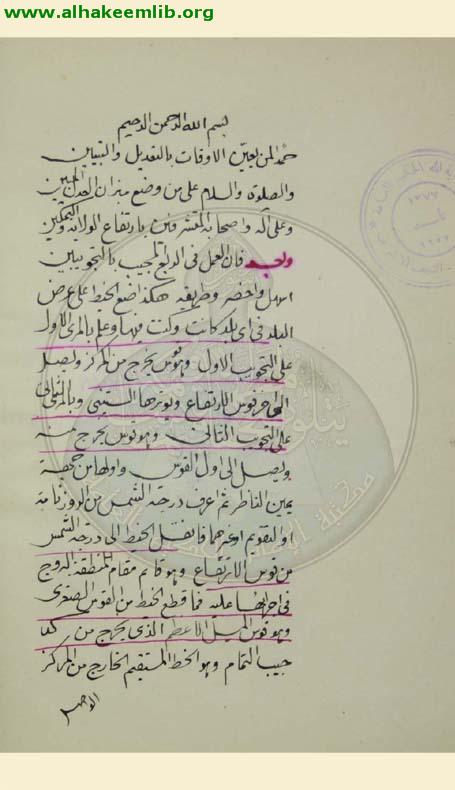 www.alhakeemlib.org
بسم الله الرحمن الرحيم
حمدا لمن يعين الاوقات بالتعديل والتبيين
والصلوة والسلام على من وضع ميزان العدل المبين
وعلى آله واصحابه المتشرفين بارتفاع الولاية والتمكين
وبعد فان العمل في الربع المجيب بالتجويبين
اسهل واخصر وطريقه هكذا ضع الخيط على عرض
البلد في اي بلد كانت وكنت فيها وعلم بالمرى الاول
على التجويب الاول وهو قوس يخرج من المركز ويصل
الى اخر قوس الارتفاع ولونزها الستيني وبالمرى الثاني
على التجويب الثاني وهو قوس يخرج منه
ويصل الى اول القوس واولها من جهة
يمين الناظر ثم اعرف درجة الشمس من الروزنامة
او التقويم او غيرهما فانقل الخيط الى درجة الشمس
من قوس الارتفاع وهو قائم مقام المنطقة البروج
في اجزائها عليه فما قطع الخيط من القوس الصغرى
وهو قوس الميل الاعظم الذي يخرج من كد
جيب التمام وهو الخط المستقيم الخارج من المركز